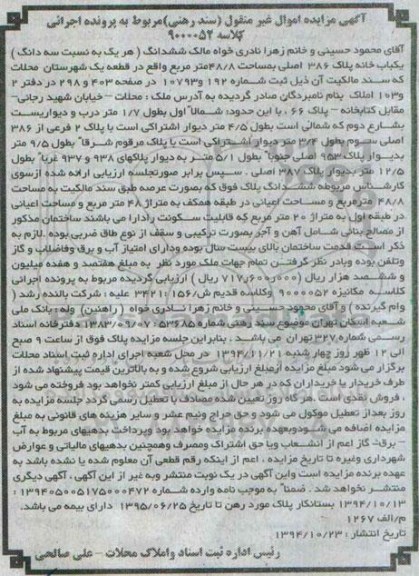 آگهی مزایده اموال غیر منقول (سند رهنی) مربوط به پرونده اجرائی
کلاسه ۹۰۰۰۰۵۲
آقای محمود حسینی و خانم زهرا نادری خواه مالک ششدانگ ( هر یک به نسبت سه دانگ )
یکباب خانه پلاک ۳۸۶ اصلی بمساحت ۴۸/۸متر مربع واقع در قطعه یک شهرستان محلات
که سند مالکیت آن ذیل ثبت شماره ۱۹۲ و۱۰۷۹۳ در صفحه ۴۰۳ و ۲۹۸ در دفتر ۲
و۱۰۳ املاک بنام نامبردگان صادر گردیده به آدرس ملک : محلات – خیابان شهید رجائی-
مقابل کتابخانه – پلاک ۶۶ ، با این حدود: شمالاً اول بطول ۱/۷ متر درب و دیواریست
بشارع دوم که شمالی است بطول ۴/۵ متر دیوار اشتراکی است با پلاک ۲ فرعی از ۳۸۶
اصلی سوم بطول ۳/۶ متر دیوار اشتراکی است با پلاک مرقوم شرقاً بطول ۹/۵ متر
بدیوار پلاک ۹۵۳ اصلی جنوباً بطول ۵/۱ متر به دیوار پلاکهای ۹۳۸ و ۹۳۷ غرباً بطول
۱۲/۵ متر بدیوار پلاک ۳۸۷ اصلی . سپس برابر صورتجلسه ارزیابی ارائه شده ازسوی
کارشناس مربوطه ششدانگ پلاک فوق که بصورت عرصه طبق سند مالکیت به مساحت
۴۸/۸ مترمربع و مساحت اعیانی در طبقه همکف به متراژ ۴۸ متر مربع و مساحت اعیانی
در طبقه اول به متراژ ۲۰ متر مربع که قابلیت سکونت رادارا می باشند ساختمان مذکور
از مصالح بنائی شامل آهن و آجر بصورت ترکیبی و سقف از نوع طاق ضربی بوده .لازم به
ذکر است قدمت ساختمان بالای بیست سال بوده ودارای امتیاز آب و برق وفاضلاب و گاز
وتلفن بوده وبادر نظر گرفتن تمام جهات ملک مورد نظر به مبلغ هفتصد و هفده میلیون
و ششصد هزار ریال (۷۱۷٫۶۰۰٫۰۰۰ ریال ) ارزیابی گردیده مربوط به پرونده اجرائی
کلاسه مکانیزه ۹۰۰۰۰۵۲ وکلاسه قدیم ش/۱۵۶/۳۴۲۱ علیه : شرکت بالنده رشد (
وام گیرنده ) و آقای محمود حسینی و خانم زهرا نادری خواه ( راهنین) وله : بانک ملی
شعبه استان تهران موضوع سند رهنی شماره ۵۳۶۸۵-۱۳۸۳/۰۹/۰۷ دفترخانه اسناد
رسمی شماره ۳۲۷ تهران می باشد . بنابراین جلسه مزایده پلاک فوق از ساعت ۹ صبح
الی ۱۲ ظهر روز چهار شنبه ۱۳۹۴/۱۱/۲۱ در محل شعبه اجرای اداره ثبت اسناد محلات
برگزار می شود مبلغ مزایده ازمبلغ ارزیابی شروع شده و به بالاترین قیمت پیشنهاد شده از
طرف خریدار یا خریداران که در هر حال از مبلغ ارزیابی کمتر نخواهد بود فروخته می شود
، فروش نقدی است . هر گاه روز تعیین شده مصادف با تعطیل رسمی گردد جلسه مزایده به
روز بعداز تعطیل موکول می شود و حق حراج ونیم عشر و سایر هزینه های قانونی به مبلغ
مزایده اضافه می شودوبعهده برنده مزایده خواهد بود وپرداخت بدهیهای مربوط به آب
– برق- گاز اعم از انشعاب ویا حق اشتراک ومصرف وهمچنین بدهیهای مالیاتی و عوارض
شهرداری وغیره تا تاریخ مزایده ، اعم از اینکه رقم قطعی آن معلوم شده یا نشده باشد به
عهده برنده مزایده است واین آگهی در یک نوبت منتشر وبه غیر از این آگهی ، آگهی دیگری
منتشر نخواهد شد . ضمناً به موجب نامه وارده شماره ۱۳۹۴۰۵۰۰۵۱۷۵۰۰۰۴۷۲ :
۱۳۹۴/۱۰/۱۳ بستانکار پلاک مورد رهن تا تاریخ ۱۳۹۵/۰۶/۲۵ دارای بیمه می باشد.
م/الف ۱۲۶۷
تاریخ انتشار : ۱۳۹۴/۱۰/۲۳
رئیس اداره ثبت اسناد واملاک محلات – علی صالحی